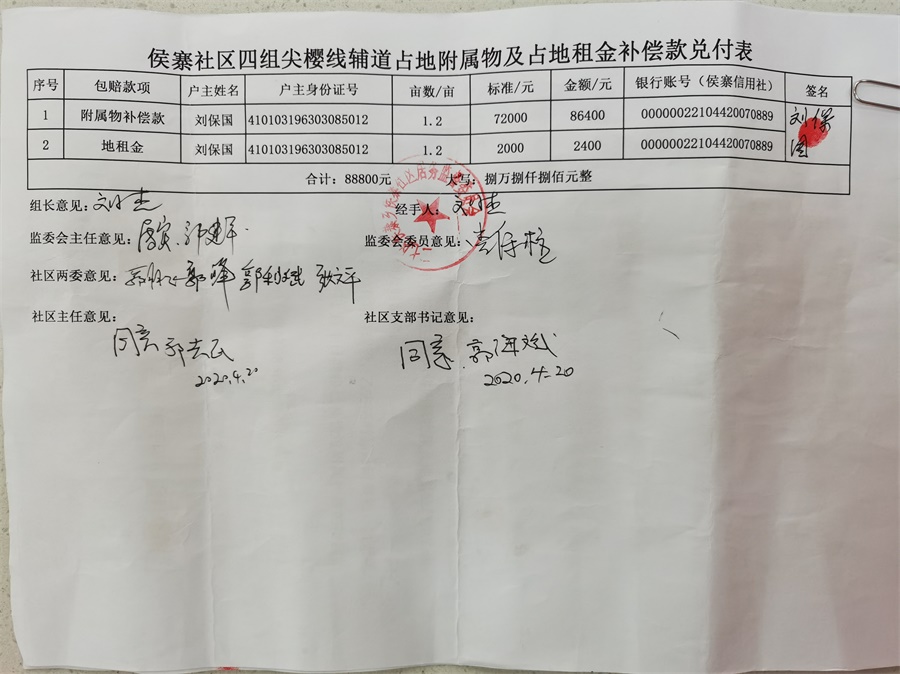 侯寨社区四组尖樱线辅道占地附属物及占地租金补偿款兑付表
序号 包赔款项 户主姓名 户主身份证号 亩数/亩 标准/元 金额/元 银行账号（侯寨信用社） 签名
1 附属物补偿款 刘保国 410103196303085012 1.2 72000 86400 00000022104420070889 刘保国
2 地租金 刘保国 410103196303085012 1.2 2000 2400 00000022104420070889
合计：88800元 大写：捌万捌仟捌佰元整
组长意见： 经手人：
监委会主任意见： 郭建军 监委会委员意见：
社区两委意见： 郭峰
社区主任意见： 社区支部书记意见：
同意 同意
2020.4.20 2020.4.20